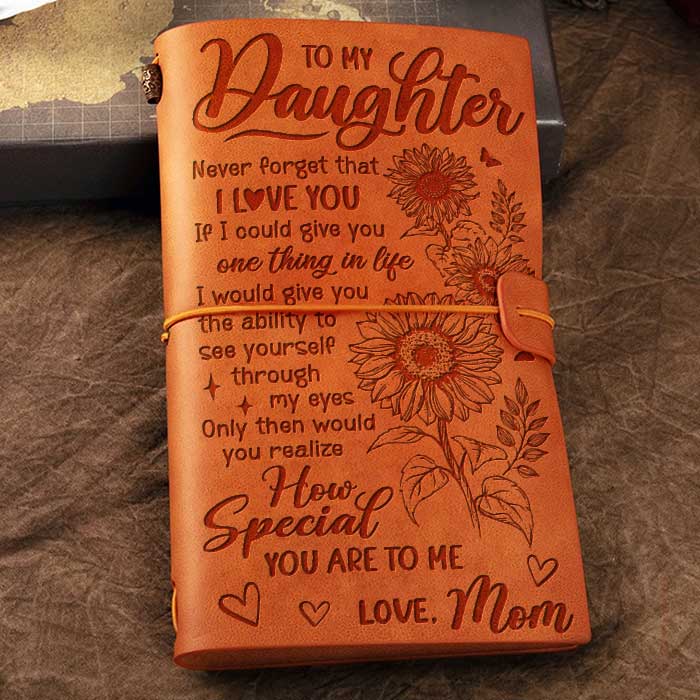 TO MY
Daughter
Never forget that
I LOVE YOU
If I could give you
one thing in life
I would give you
the ability to
see yourself
through
my eyes
Only then would
you realize
How
Special
YOU ARE TO ME
LOVE, Mom